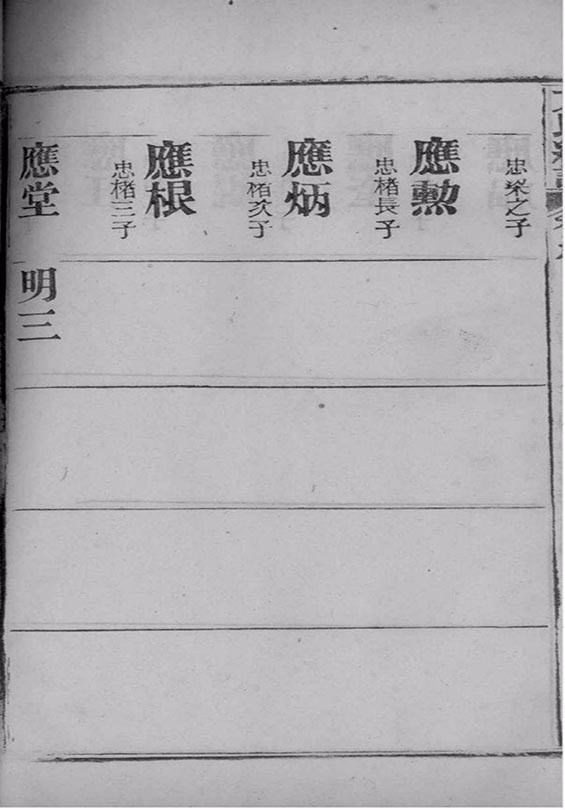 之子
應勲
忠楮長子
應炳
忠楮次子
應根
忠楮三子
應堂
明三